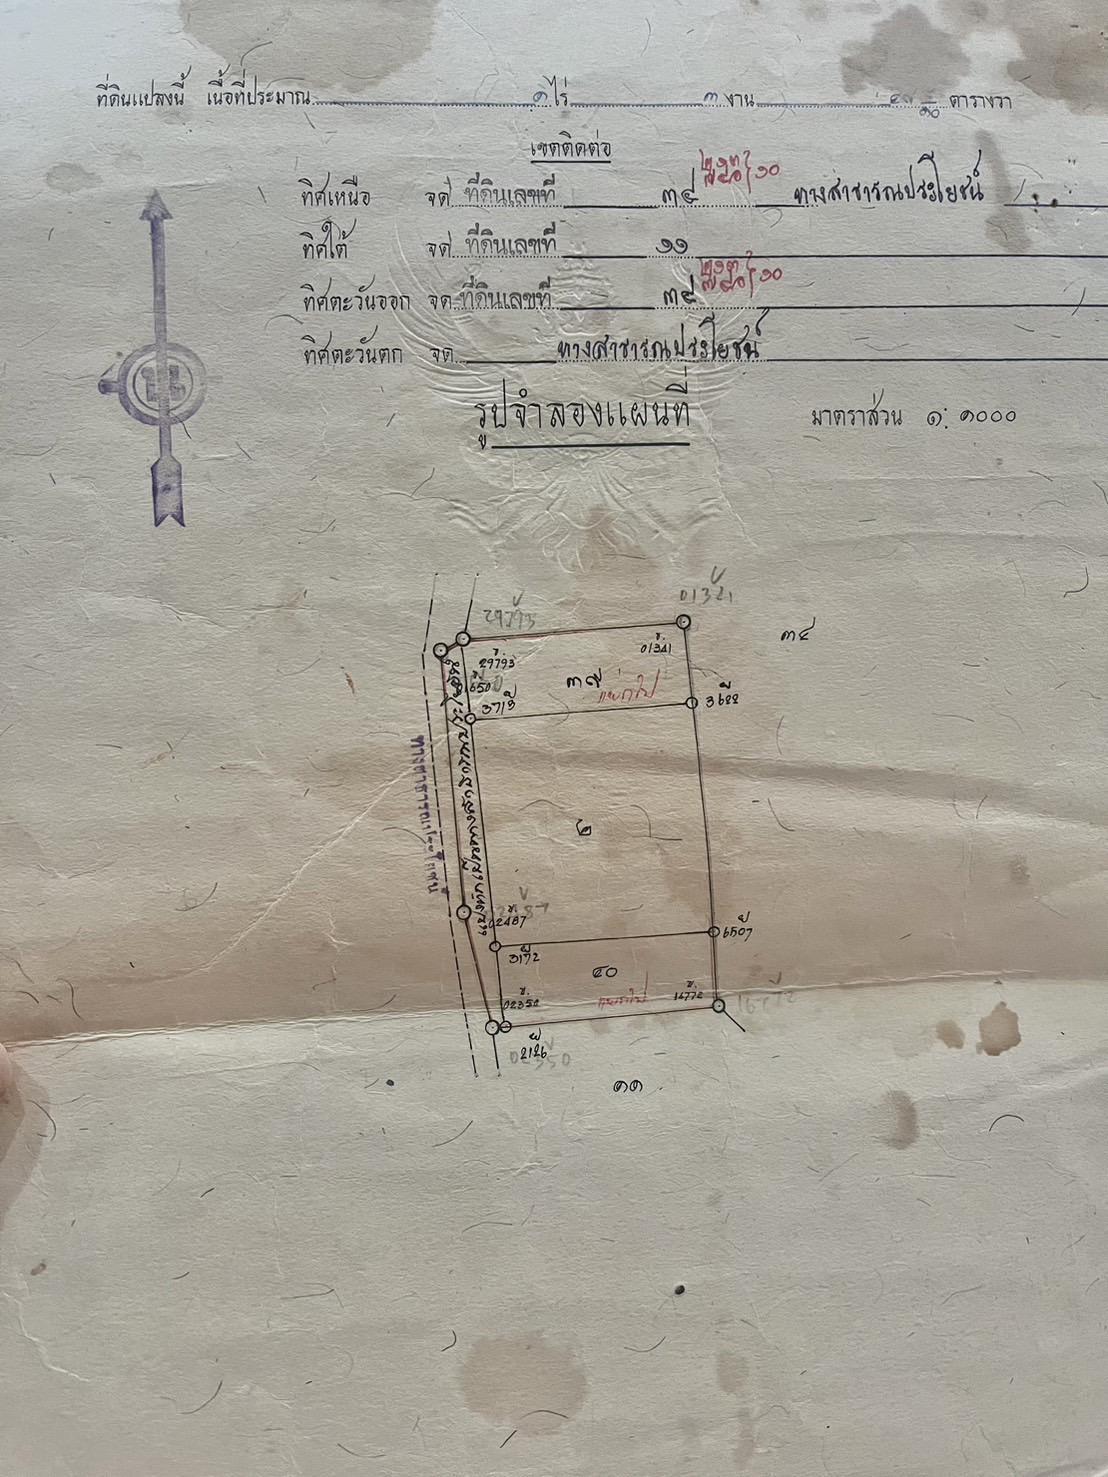 ที่ดินแปลงนี้ เนื้อที่ประมาณ ๑ ไร่ ๓ งาน ตารางวา
เขตติดต่อ
ทิศเหนือ จด ที่ดินเลขที่ ๓๔ ทางสาธารณประโยชน์
ทิศใต้ จด ที่ดินเลขที่ ๑๑
ทิศตะวันออก จด ที่ดินเลขที่ ๓๔
ทิศตะวันตก จด ทางสาธารณประโยชน์
รูปจำลองแผนที่ มาตราส่วน ๑:๑๐๐๐
น
29793
01341
๓๔
ข. 01341
ข. 29793
๓๙
แยกไป
3713
3622
ทางสาธารณประโยชน์
๒
ข. 02487
6507
3172
๔๐
ข. 02350
แยกไป
ข. 16772
16772
2126
02350
๑๑